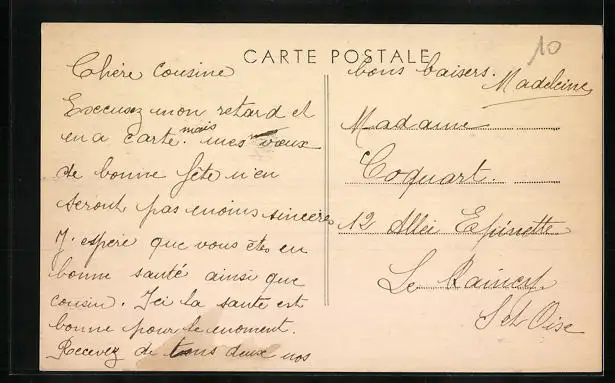 CARTE POSTALE
10
Chère cousine
Excusez mon retard et
en a carte. mais mes vœux
de bonne fête n'en
seront pas moins sincères
J. espère que vous êtes en
bonne santé ainsi que
cousin. Ici la santé est
bonne pour le moment.
Recevez de tous deux nos
bons baisers. Madeleine
Madame
Coquart.
12 Allée Epinette
Le Raincy
S et Oise